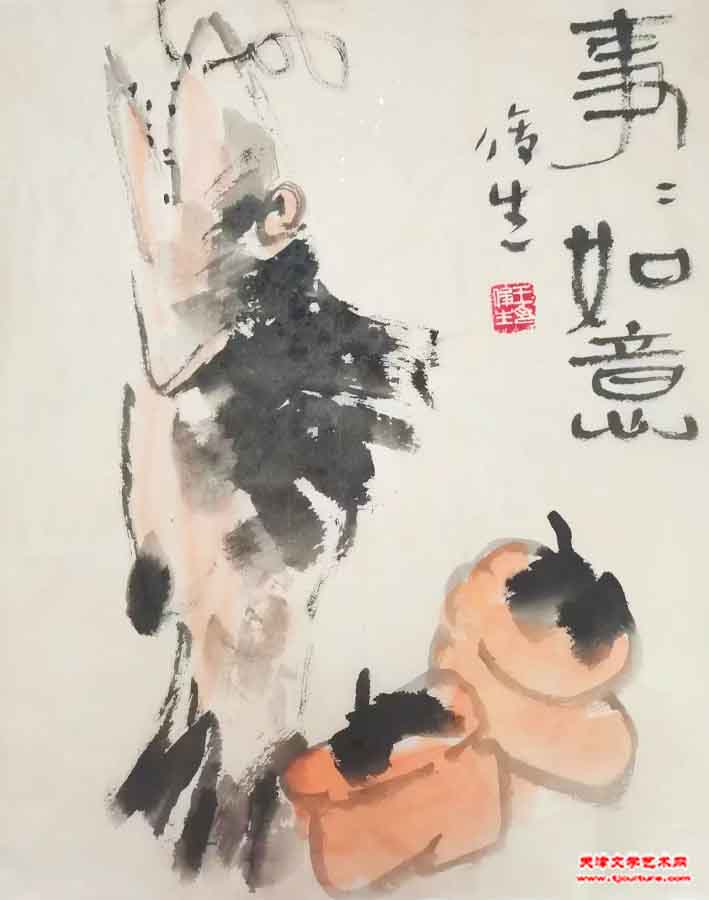 事〻如意
天津文学艺术网
www.tjculture.com